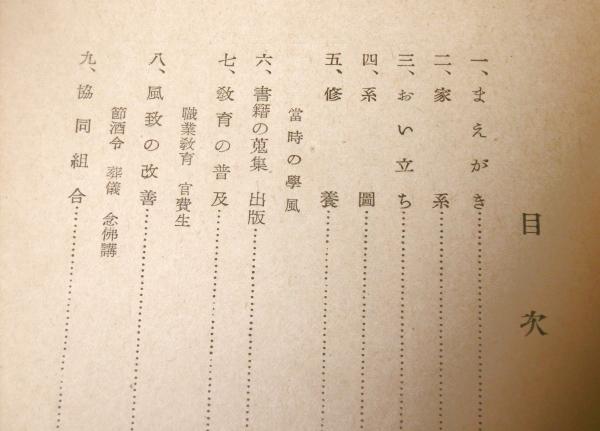 目次
一、まえがき
二、家系
三、おい立ち
四、系圖
五、修養
當時の學風
六、書籍の蒐集 出版
七、教育の普及
職業教育 官費生
八、風致の改善
節酒令 葬儀 念佛講
九、協同組合